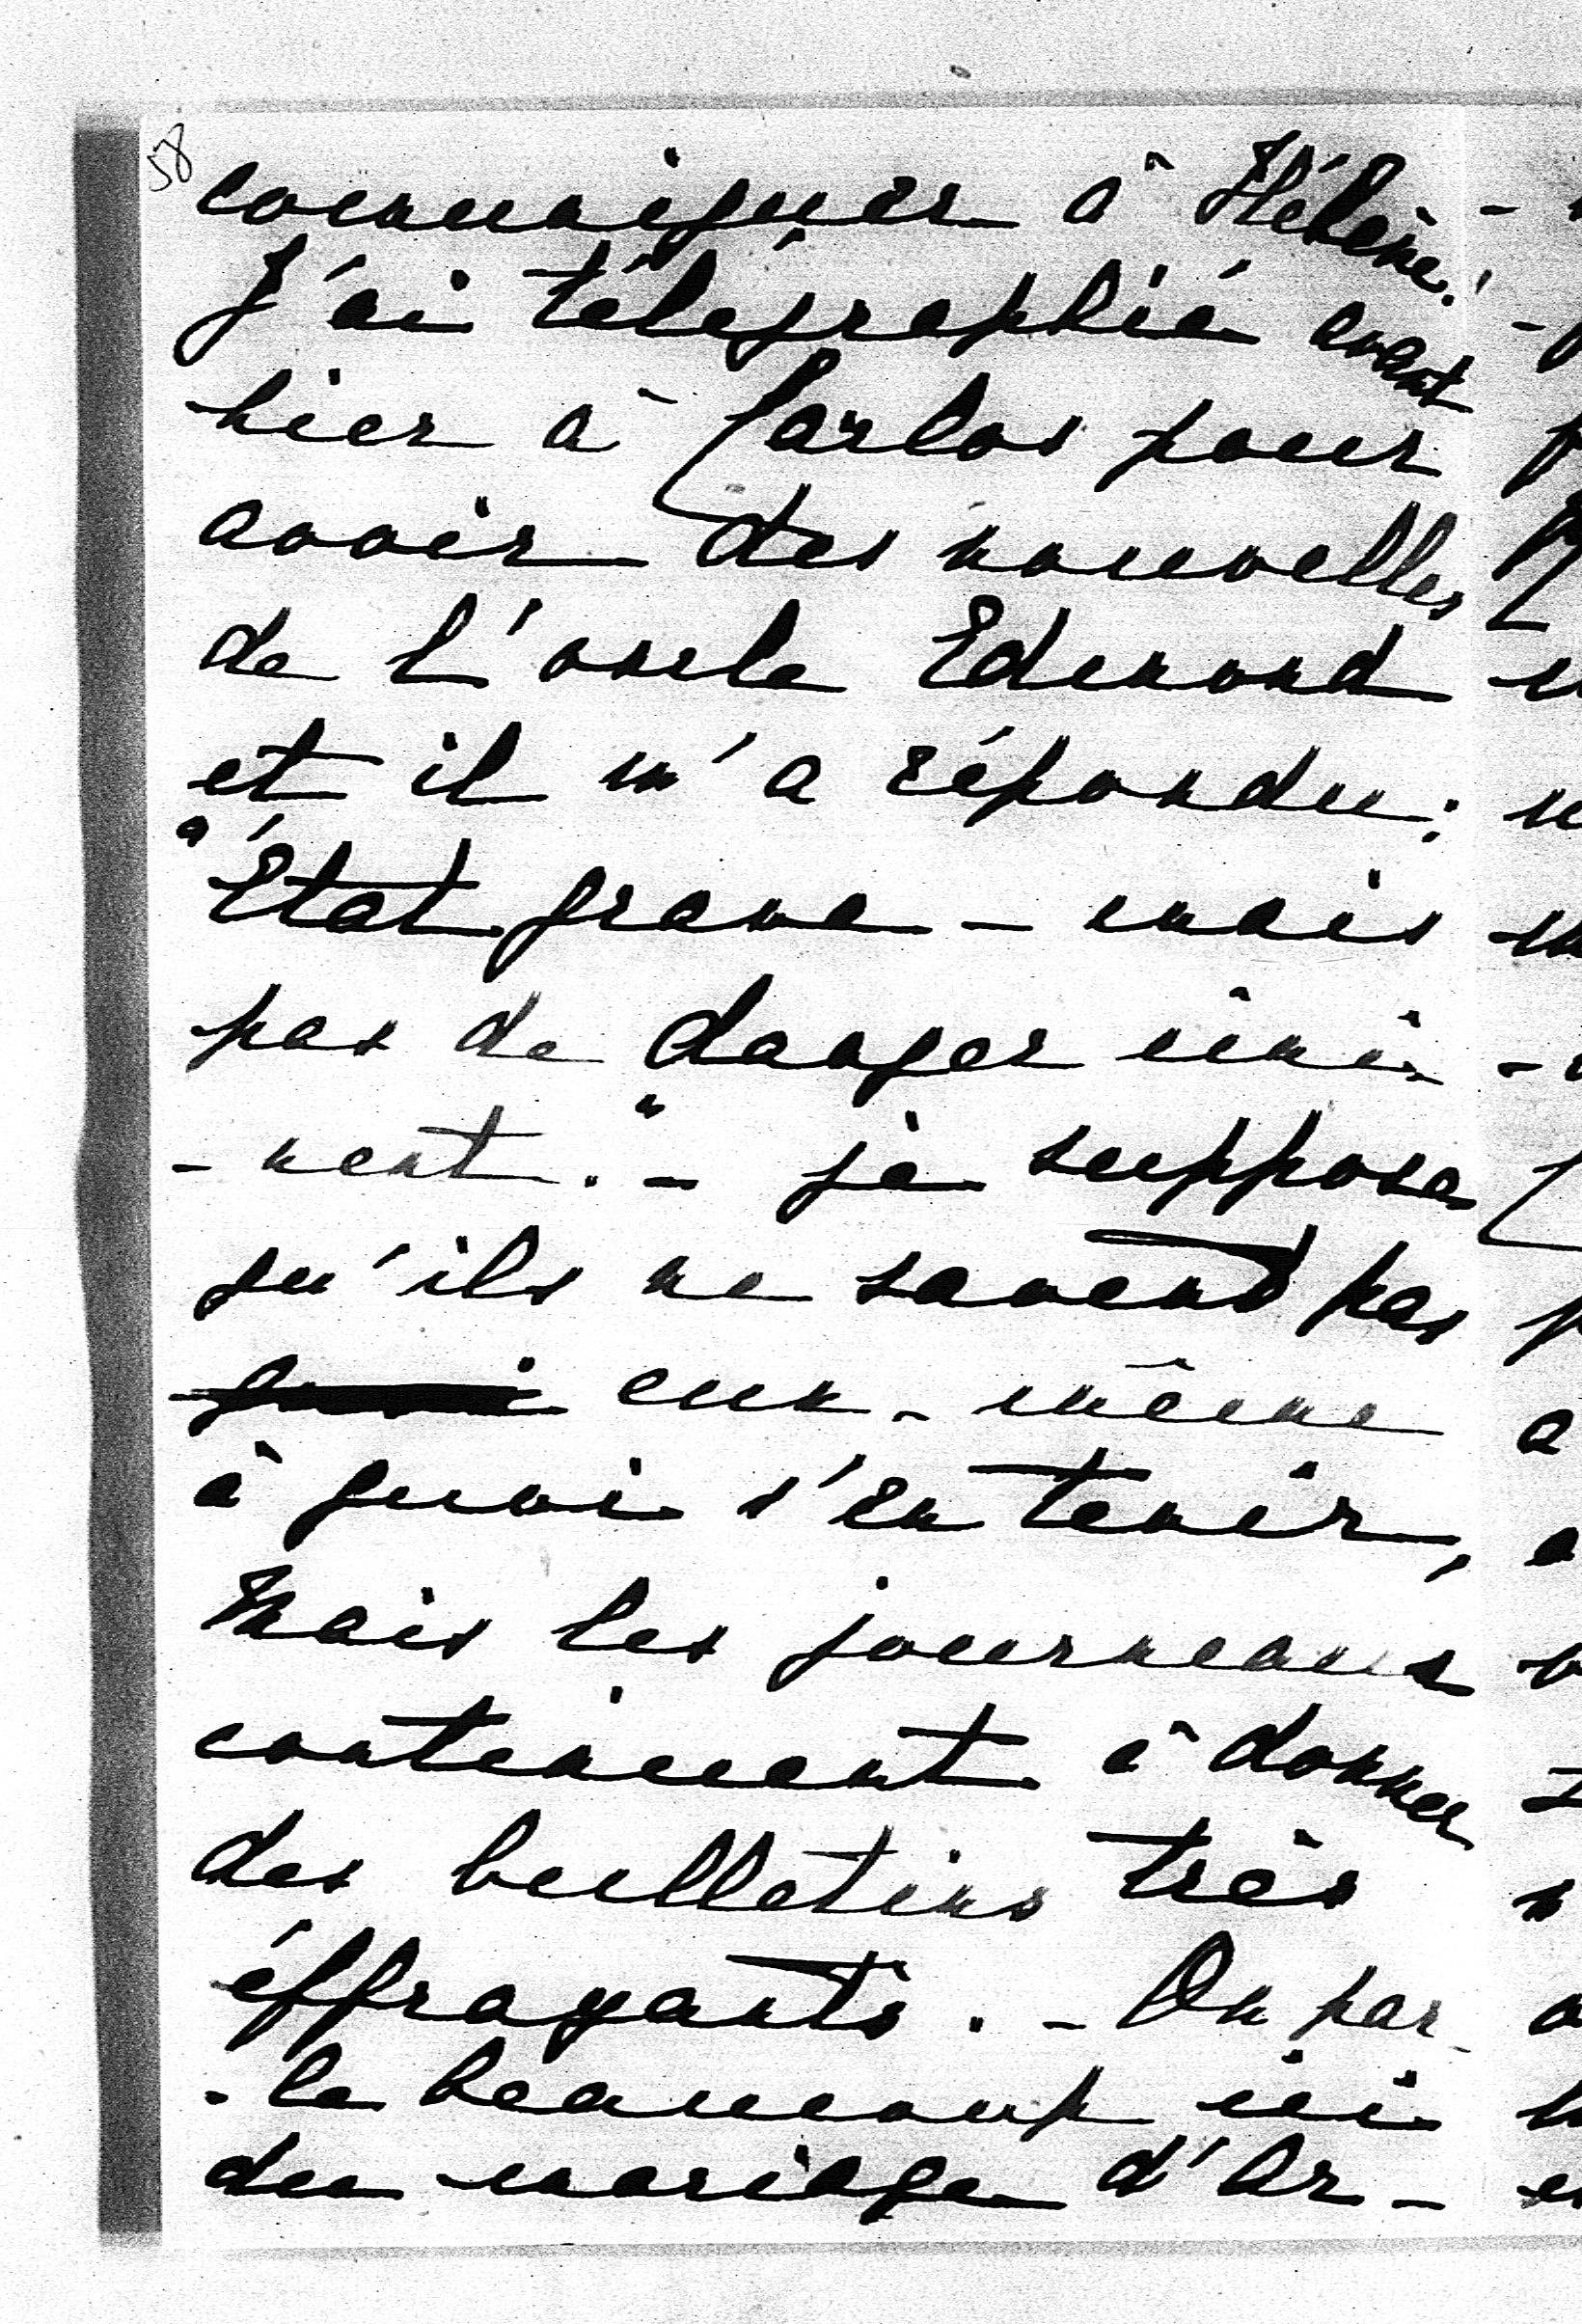 58
communiquer à Hélène.!
J'ai télégraphié avant
hier à Carlos pour
avoir des nouvelles
de l'oncle Edmond
et il m'a répondu :
"État grave - mais
pas de danger imi-
-nent." - je suppose
qu'ils ne savent pas
quoi eux-même
à quoi s'en tenir,
Mais les journeaux
continuent à donner
des bulletins très
éffrayants. - On par-
-le beaucoup ici
du mariage d'Ar-